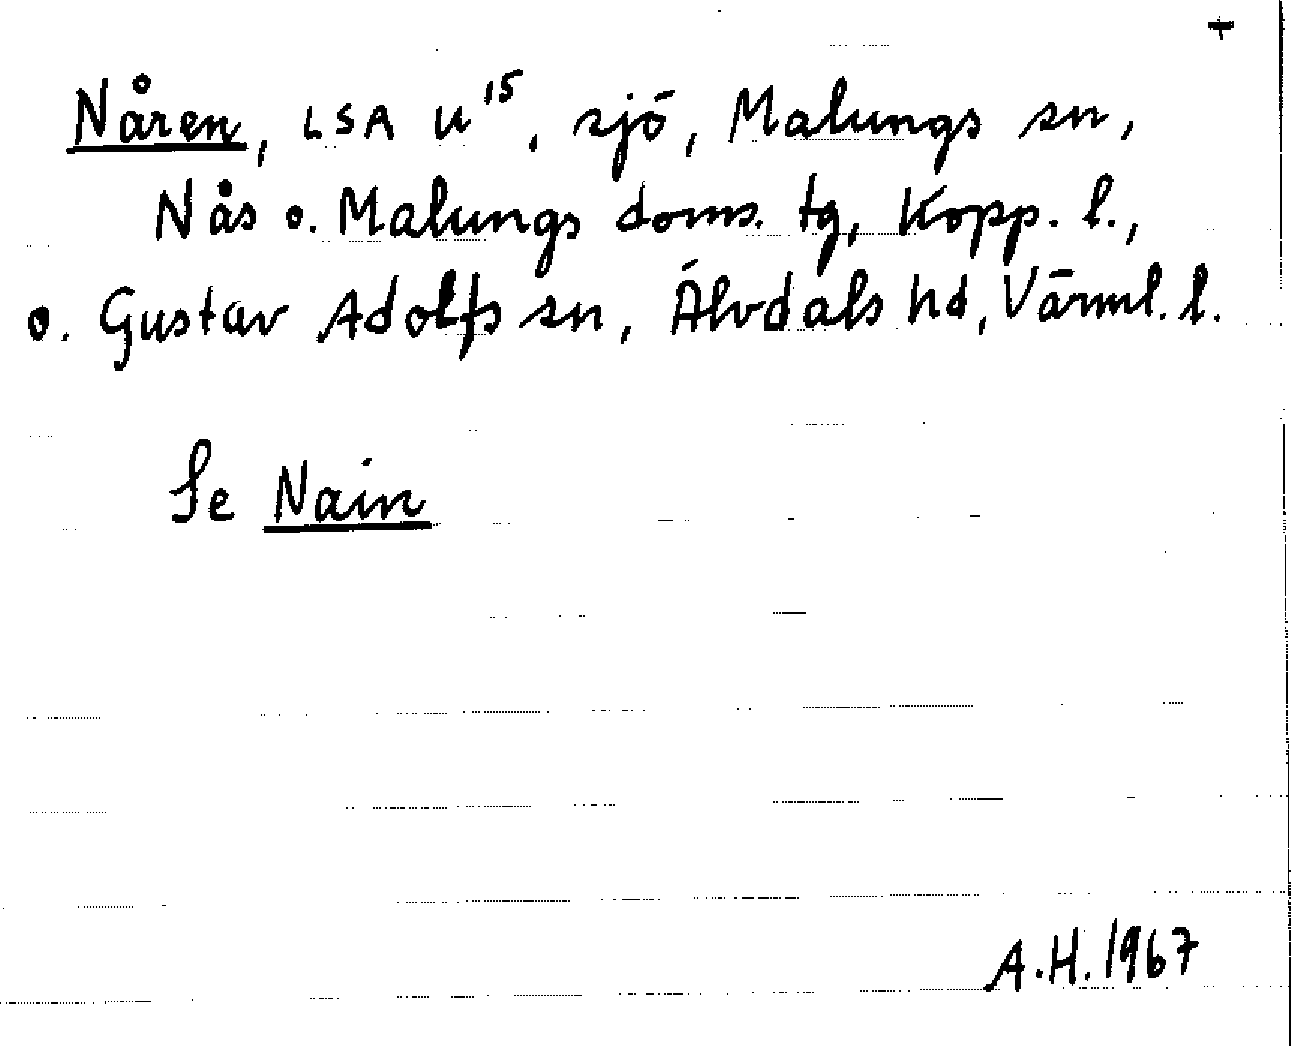 +
Nåren, LSA U¹⁵, sjö, Malungs sn,
Nås o. Malungs doms. tg, Kopp. l.,
o. Gustav Adolfs sn, Älvdals hd, Värml. l.
Se Nain
A.H. 1967